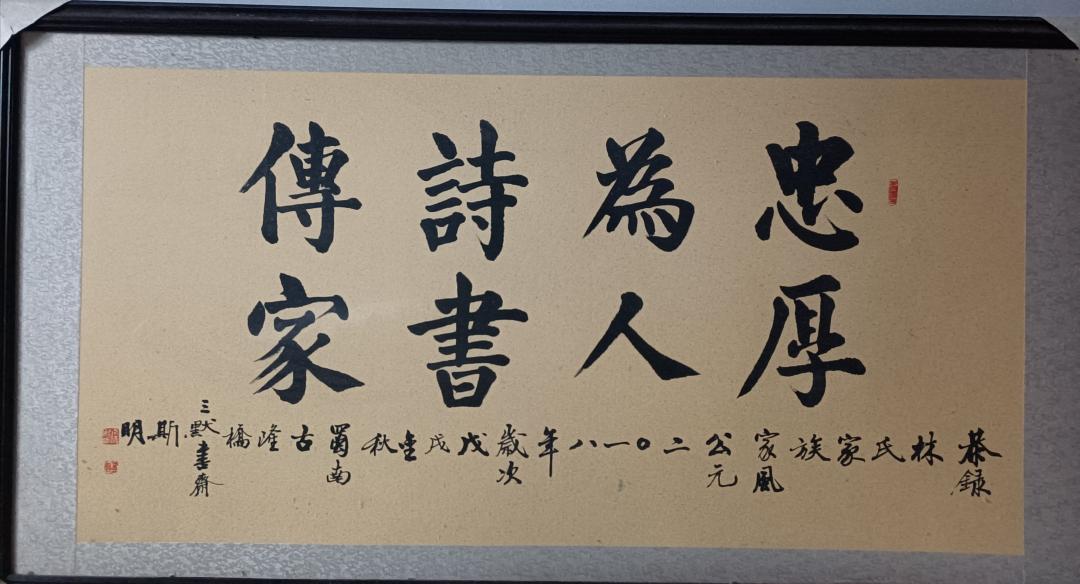 忠厚
為人
詩書
傳家
恭録
林
氏
家
族
家風
公元
二
〇
一
八
年
歲次
戊
戌
秋
蜀南
古
隆
橋
三默書齋
斯
明